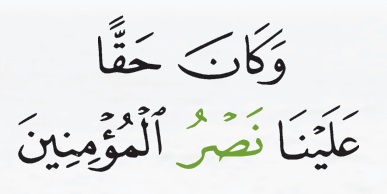 وَكَانَ حَقًّا
عَلَيْنَا نَصْرُ الْمُؤْمِنِينَ